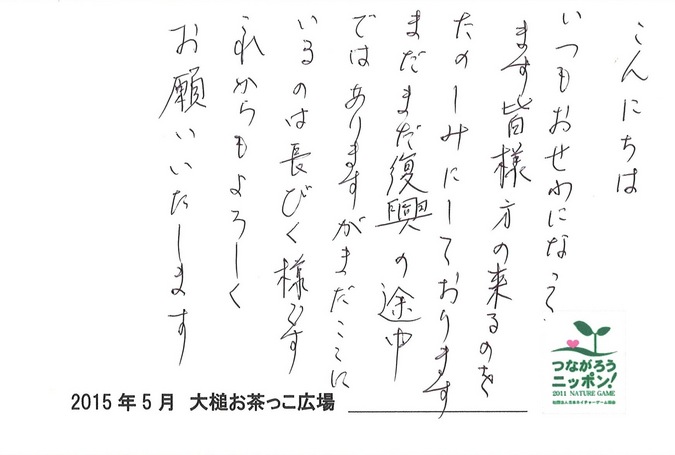 こんにちは
いつもおせわになって
ます皆様方の来るのを
たのしみにしております
まだまだ復興の途中
ではありますがまだここに
いるのは長びく様です
これからもよろしく
お願いいたします
つながろう
ニッポン!
2011 NATURE GAME
社団法人日本ネイチャーゲーム協会
2015年5月 大槌お茶っこ広場